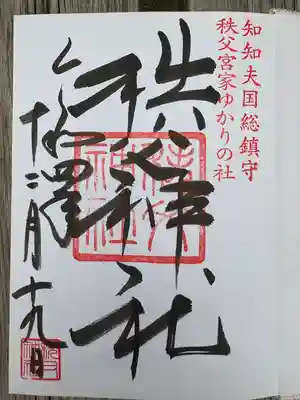 知知夫国総鎮守
秩父宮家ゆかりの社
秩父神社
令和四年
十二月十九日
秩父神社